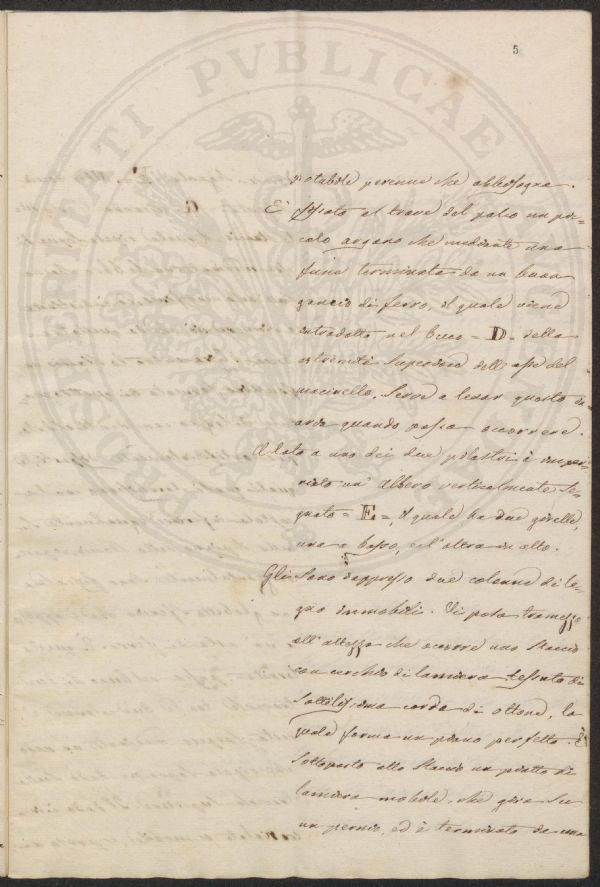 5
PROSPERITATI PVBLICAE
notabile perenne che abbisogna.
E' fissato al trave del palco un pic=
colo argano che mediante una
fune terminata da un buon
gancio di ferro, il quale viene
introdotto nel buco = D = della
estremità superiore dell'asse del
macinello, serve a levar questo in
aria quando possa occorrere.
A lato a uno dei due pilastri è imper=
niato un albero verticalmente se=
gnato = E =, il quale ha due girelle,
una a basso, e l'altra in alto.
Gli sono dappresso due colonne di le=
gno immobili. Si posa tramezzo
all'altezza che occorre uno staccio
con cerchio di lamiera tessuto di
sottilissima corda di ottone, la
quale forma un piano perfetto. È
sottoposto allo staccio un piatto di
lamiera mobile, che gira su
un pernio, ed è terminato da una